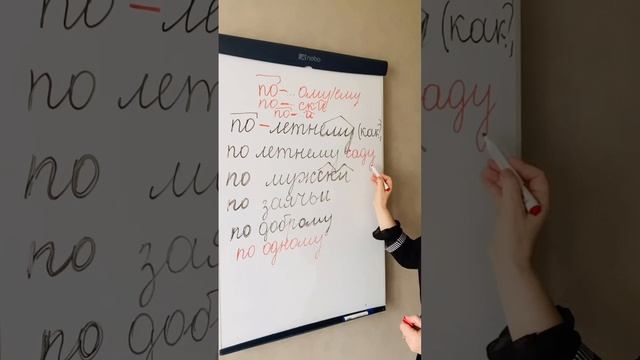 nobo
по-...ому/ему
по-...ски
по-...и
по-летнему (как?
по летнему саду
по мужски
по заячьи
по доброму
по одному